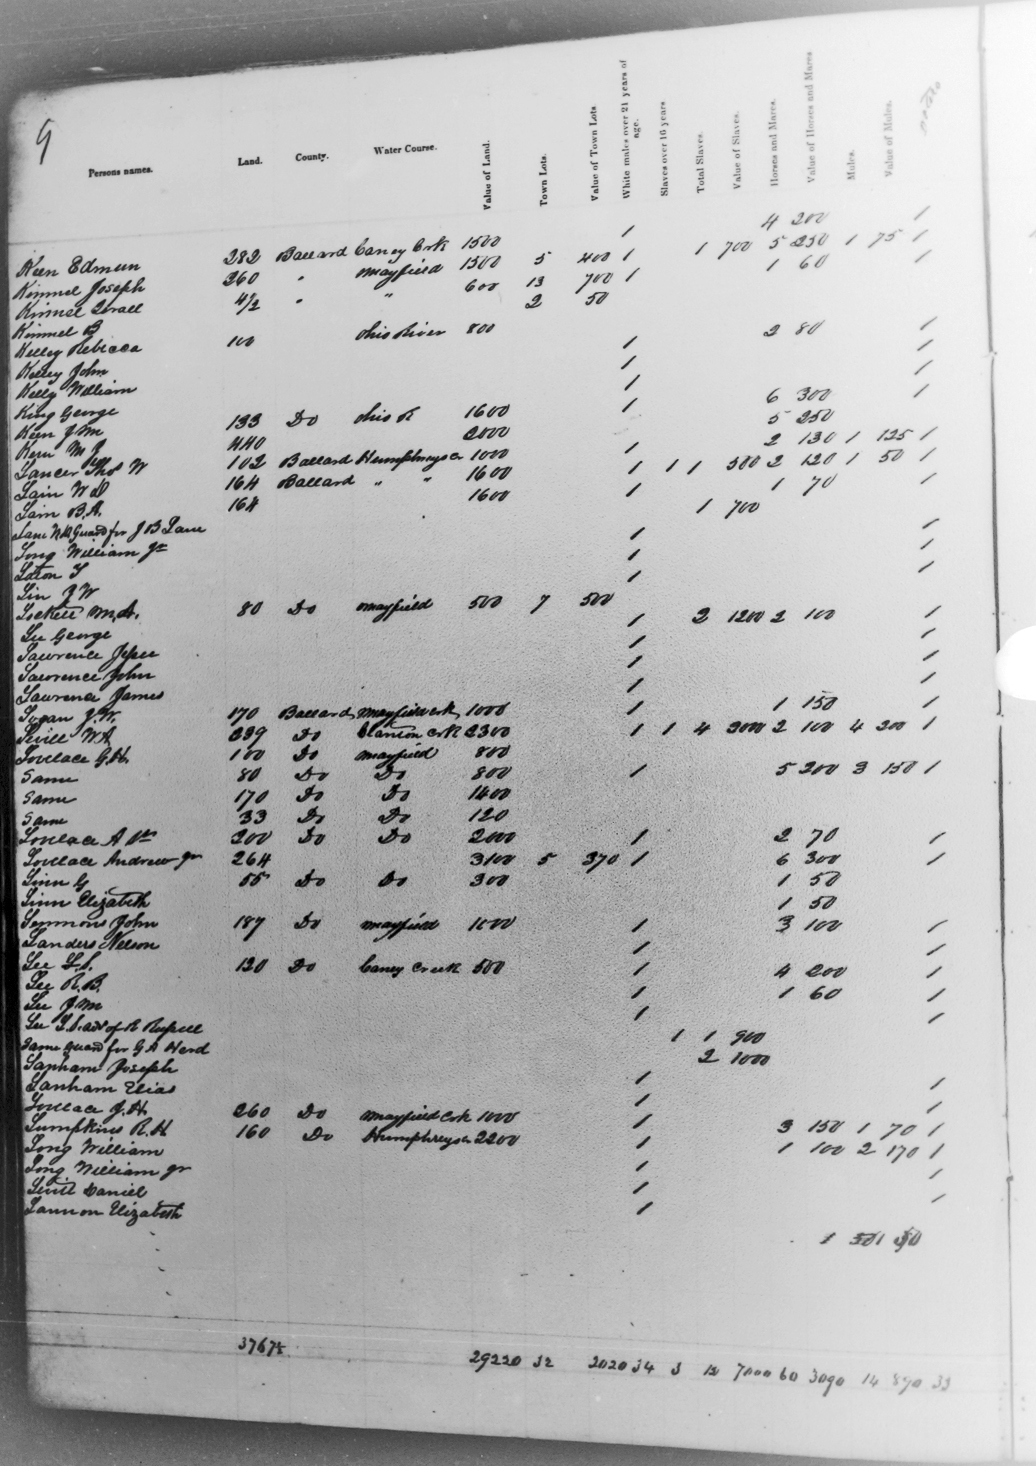 9
Persons names. Land. County. Water Course. Value of Land. Town Lots. Value of Town Lots White males over 21 years of age. Slaves over 16 years. Total Slaves. Value of Slaves. Horses and Mares. Value of Horses and Mares Mules. Value of Mules.
Keen Edmun 1 4 200 1
Kimmel Joseph 282 Ballard Caney Crk 1500 5 400 1 1 700 5 250 1 75 1
Kimmel Israel 260 " Mayfield 1500 13 700 1 1 60 1
Kimmel B 4½ " " 600 2 50
Kelley Rebecca 100 Ohio River 800 2 80
Kelley John 1 1
Kelly William 1 1
King George 1 1
Keen J M 133 Do Ohio R 1600 1 6 300 1
Kern M J 440 2000 5 250
Lancer Thos W 102 Ballard Humphreys cr 1000 1 2 130 1 125 1
Lain W D 164 Ballard " " 1600 1 1 1 500 2 120 1 50 1
Lain B.A. 164 1600 1 1 70 1
Lane W D Guard for J B Lane 1 700
Long William Jr 1 1
Laton S 1 1
Lin J W 1 1
Lockett M.A. 80 Do Mayfield 500 7 500
Lee George 1 2 1200 2 100 1
Lawrence Jesse 1 1
Lawrence John 1 1
Lawrence James 1 1
Logan J.W. 170 Ballard Mayfield crk 1000 1 1 150 1
Levill W A 239 Do Stanton Crk 2300 1 1 4 3000 2 100 4 200 1
Lovelace G.H. 100 Do Mayfield 800
Same 80 Do Do 800 1 5 200 3 150 1
Same 170 Do Do 1400
Same 33 Do Do 120
Lovelace A Sr 200 Do Do 2000 1 2 70 1
Lovelace Andrew Jr 264 3100 5 370 1 6 300 1
Linn G 55 Do Do 300 1 50
Linn Elizabeth 1 50
Lemmons John 187 Do Mayfield 1000 1 3 100 1
Landers Nelson 1 1
Lee L.S. 120 Do Caney Creek 500 1 4 200 1
Lee R.B. 1 1 60 1
Lee J M 1 1
Lee L.S. adr of R Russell 1 1 900
Same guard for G A Herd 2 1000
Lanham Joseph 1 1
Lanham Elias 1 1
Lovelace J.H. 260 Do Mayfield Crk 1000 1 3 150 1 70 1
Lumpkins R.H 160 Do Humphreys cr 2200 1 1 100 2 170 1
Long William 1 1
Long William Jr 1 1
Levill Daniel 1
Lannon Elizabeth
1 50 1 50
3767½ 29220 32 2020 34 3 12 7000 60 3090 14 890 33